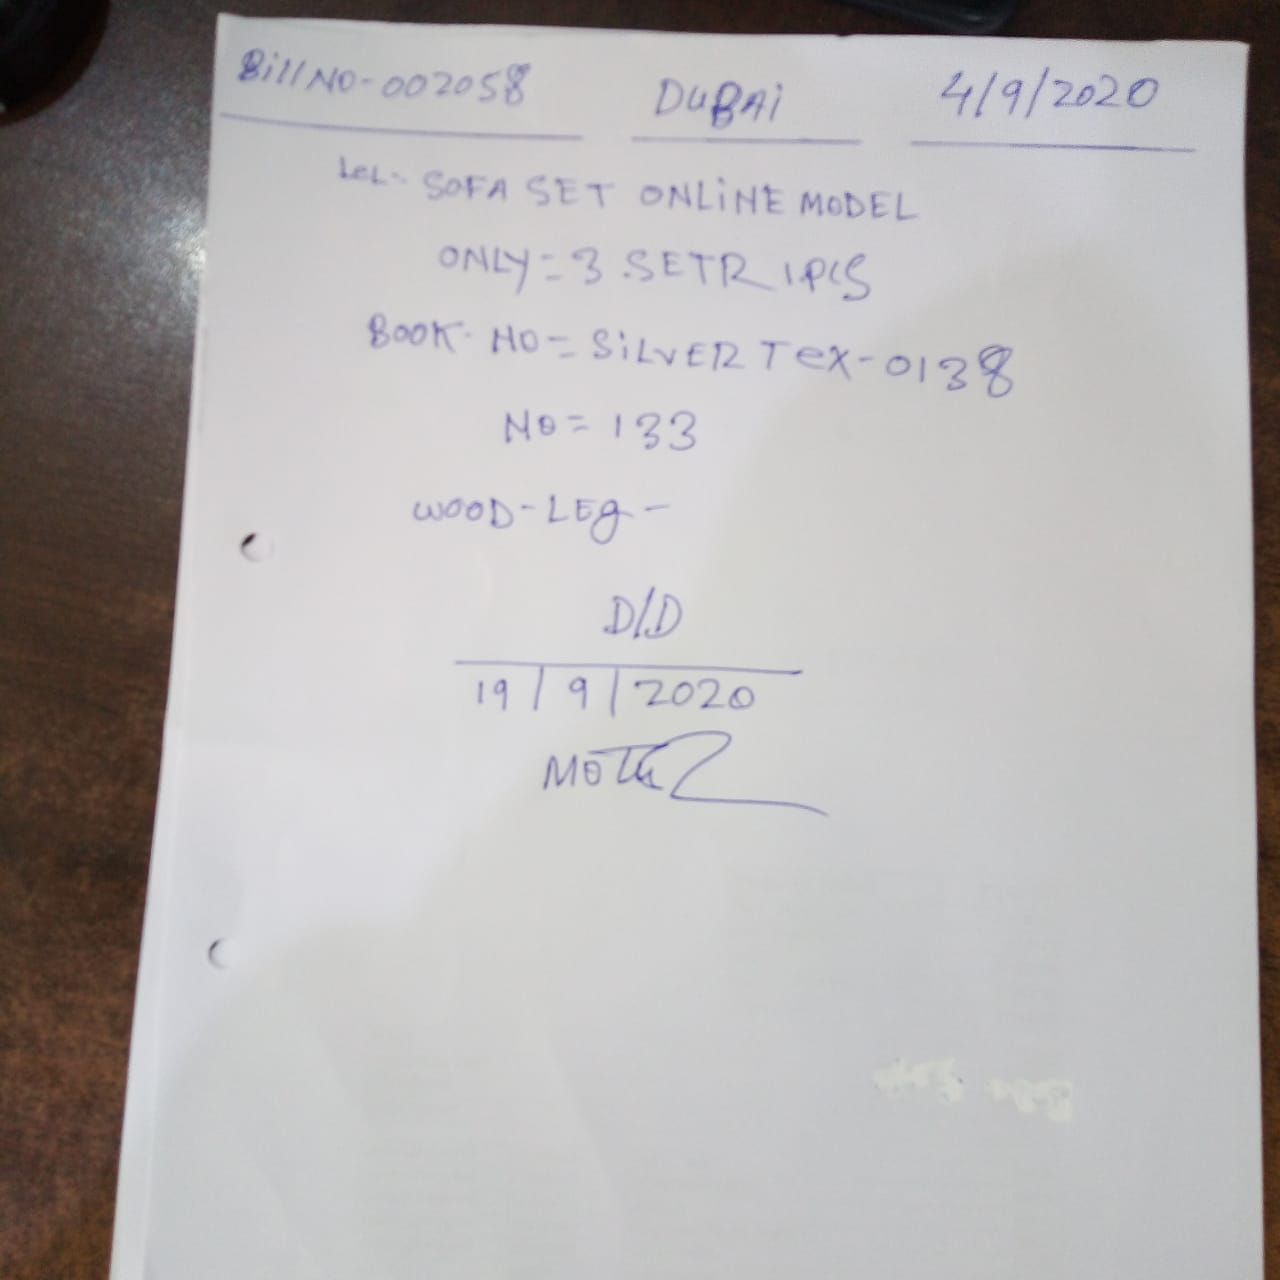 Bill NO-002058 DUBAi 4/9/2020
SOFA SET ONLiNE MODEL
ONLY=3.SETR 1PCS
BOOK-NO=SiLVER TeX-0138
NO=133
WOOD-LEg-
D/D
19/9/2020